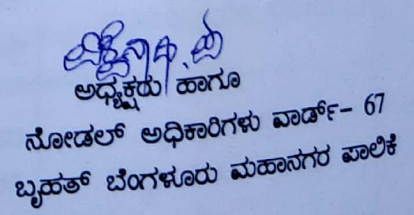 ಅಧ್ಯಕ್ಷರು ಹಾಗೂ
ನೋಡಲ್ ಅಧಿಕಾರಿಗಳು ವಾರ್ಡ್- 67
ಬೃಹತ್ ಬೆಂಗಳೂರು ಮಹಾನಗರ ಪಾಲಿಕೆ